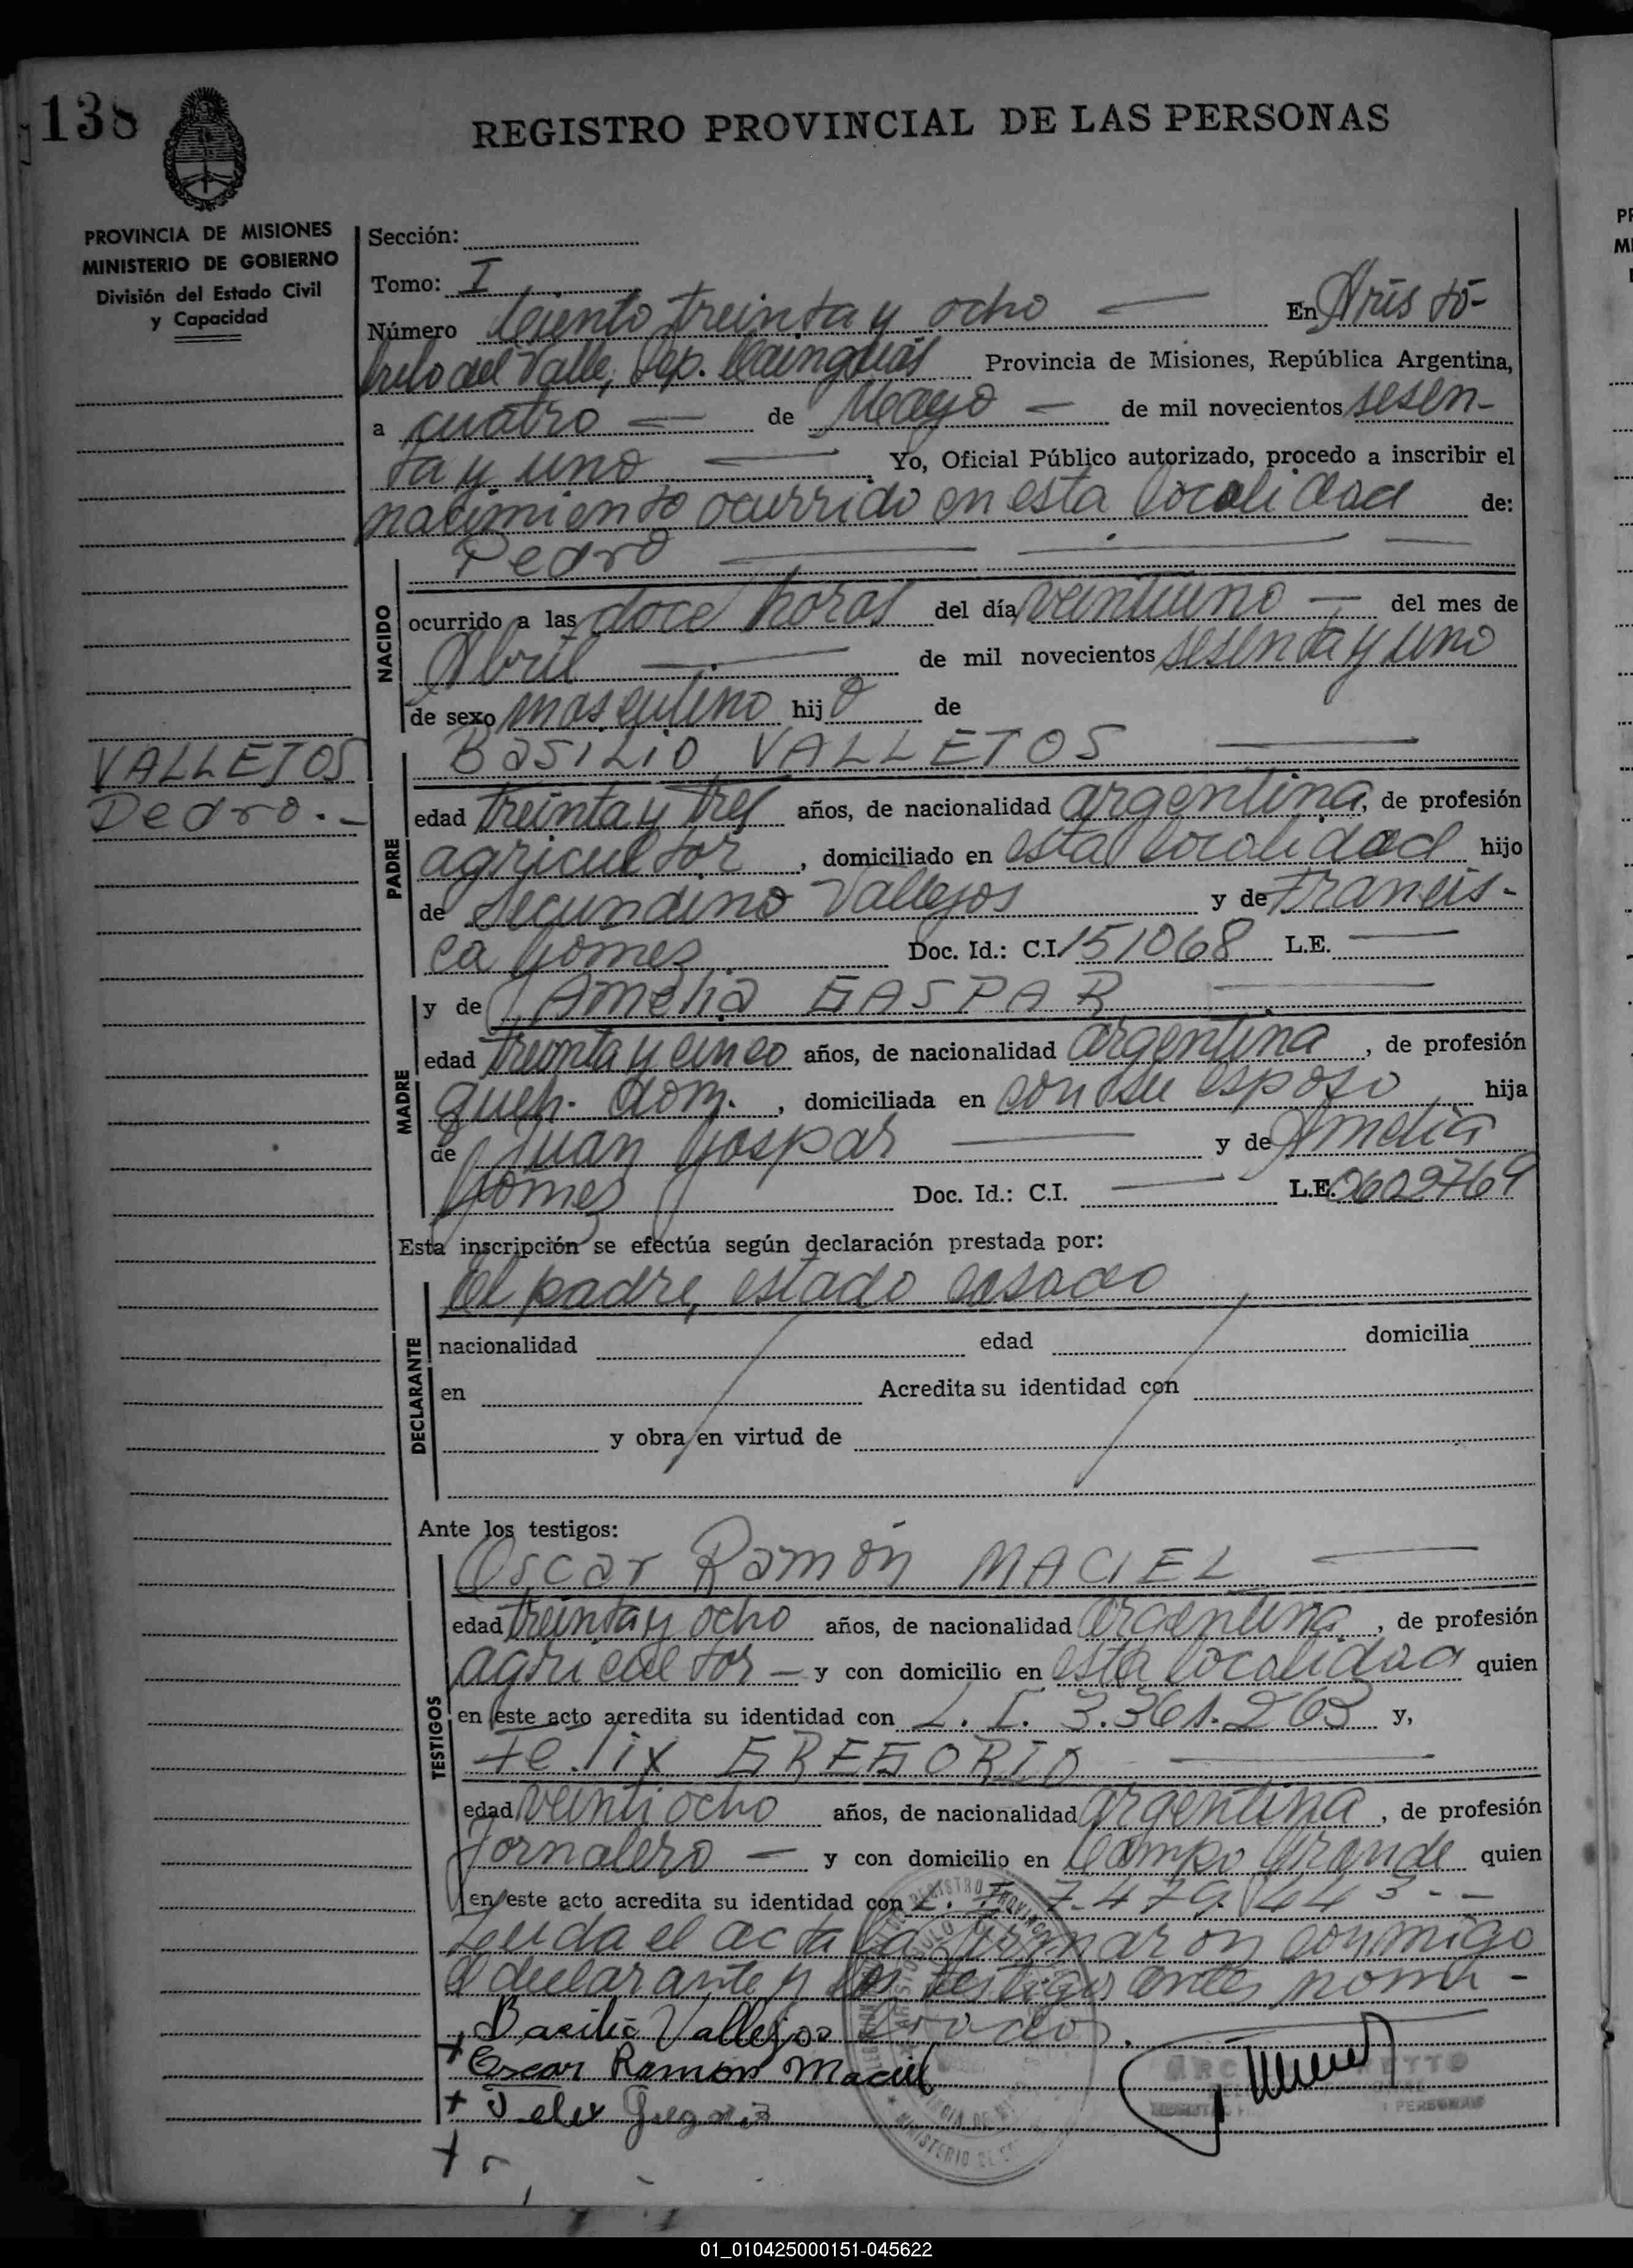 138
REGISTRO PROVINCIAL DE LAS PERSONAS
PROVINCIA DE MISIONES
MINISTERIO DE GOBIERNO
División del Estado Civil
y Capacidad
Sección:
Tomo: I
Número Ciento treinta y ocho — En Aristó-
bulo del Valle, Dep. Cainguás Provincia de Misiones, República Argentina,
a cuatro — de Mayo — de mil novecientos sesen-
ta y uno — Yo, Oficial Público autorizado, procedo a inscribir el
nacimiento ocurrido en esta localidad de:
Pedro —
NACIDO
ocurrido a las doce horas del día veintiuno — del mes de
Abril — de mil novecientos sesenta y uno
de sexo masculino hijo de
VALLEJOS
Pedro.-
PADRE
BASILIO VALLEJOS —
edad treinta y tres años, de nacionalidad argentina, de profesión
agricultor, domiciliado en esta localidad hijo
de Secundino Vallejos y de Francis-
ca Gómez Doc. Id.: C.I. 151068 L.E. —
MADRE
y de Amelia GASPAR —
edad treinta y cinco años, de nacionalidad argentina, de profesión
queh. dom., domiciliada en con su esposo hija
de Juan Gaspar — y de Amelia
Gómez Doc. Id.: C.I. — L.E. 0602769
Esta inscripción se efectúa según declaración prestada por:
DECLARANTE
el padre, estado casado
nacionalidad edad domicilia
en Acredita su identidad con
y obra en virtud de
Ante los testigos:
TESTIGOS
Oscar Ramón MACIEL —
edad treinta y ocho años, de nacionalidad argentina, de profesión
agricultor — y con domicilio en esta localidad quien
en este acto acredita su identidad con L. I. 3.361.263 y,
Felix GREGORIO —
edad veintiocho años, de nacionalidad argentina, de profesión
jornalero — y con domicilio en Campo Grande quien
en este acto acredita su identidad con L. I. 7.479.443.-
Leida el acta la firmaron conmigo
el declarante y los testigos antes nom-
brados. —
Basilio Vallejos
+ Oscar Ramon Maciel
+ Felix Gregorio
01_010425000151-045622